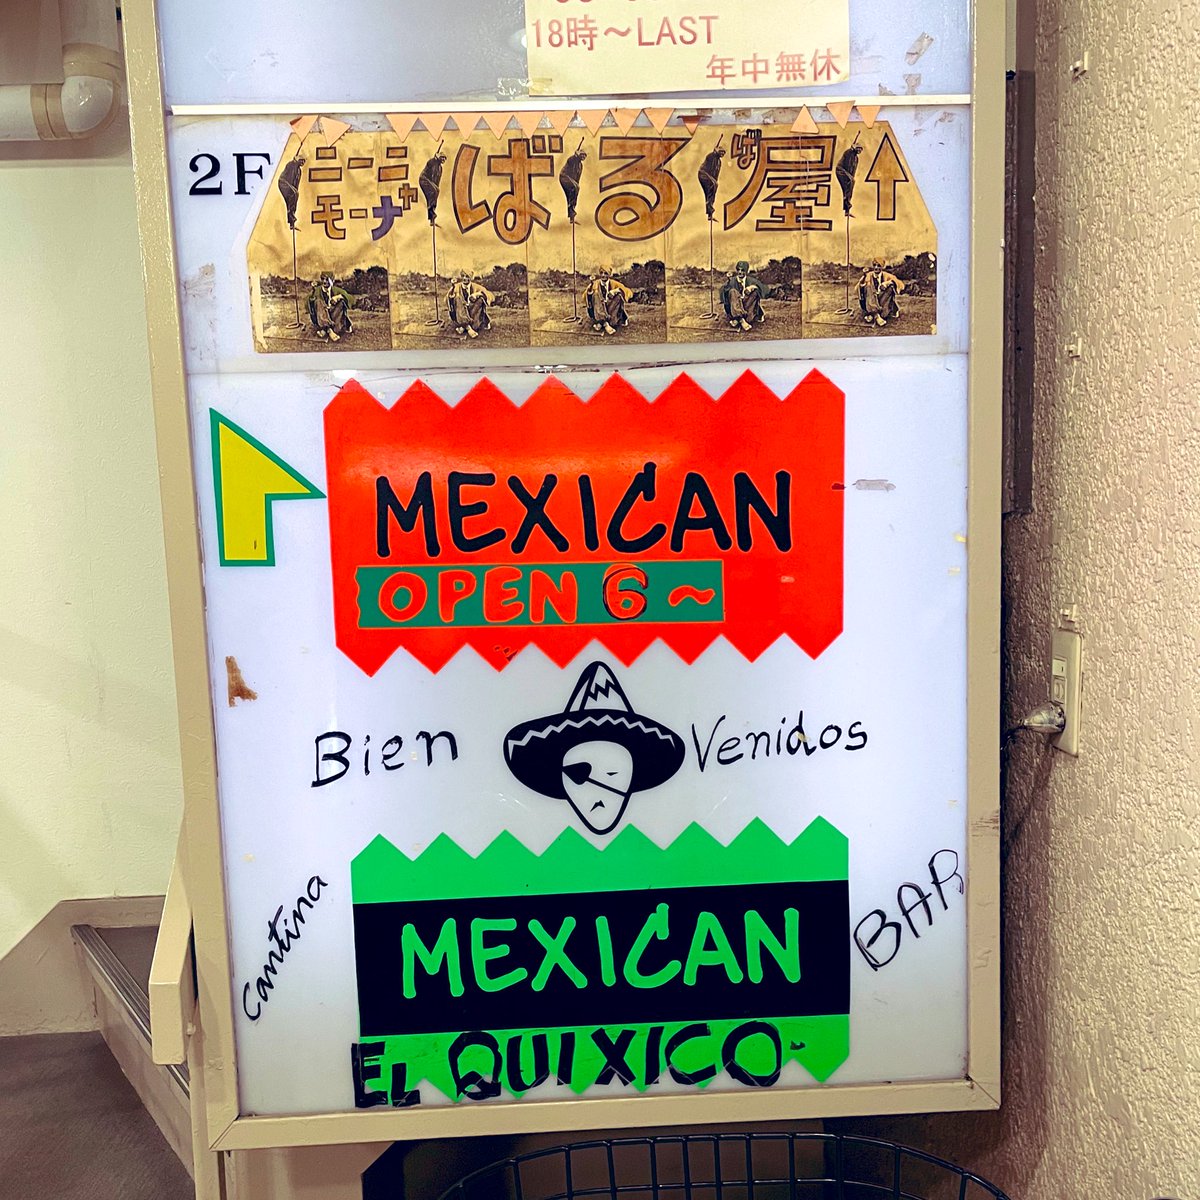 18時～LAST
年中無休
2F
ニーニャ
モーナ
ばる
ば屋
MEXICAN
OPEN 6 ~
Bien Venidos
MEXICAN
Cantina
BAR
EL QUIXICO